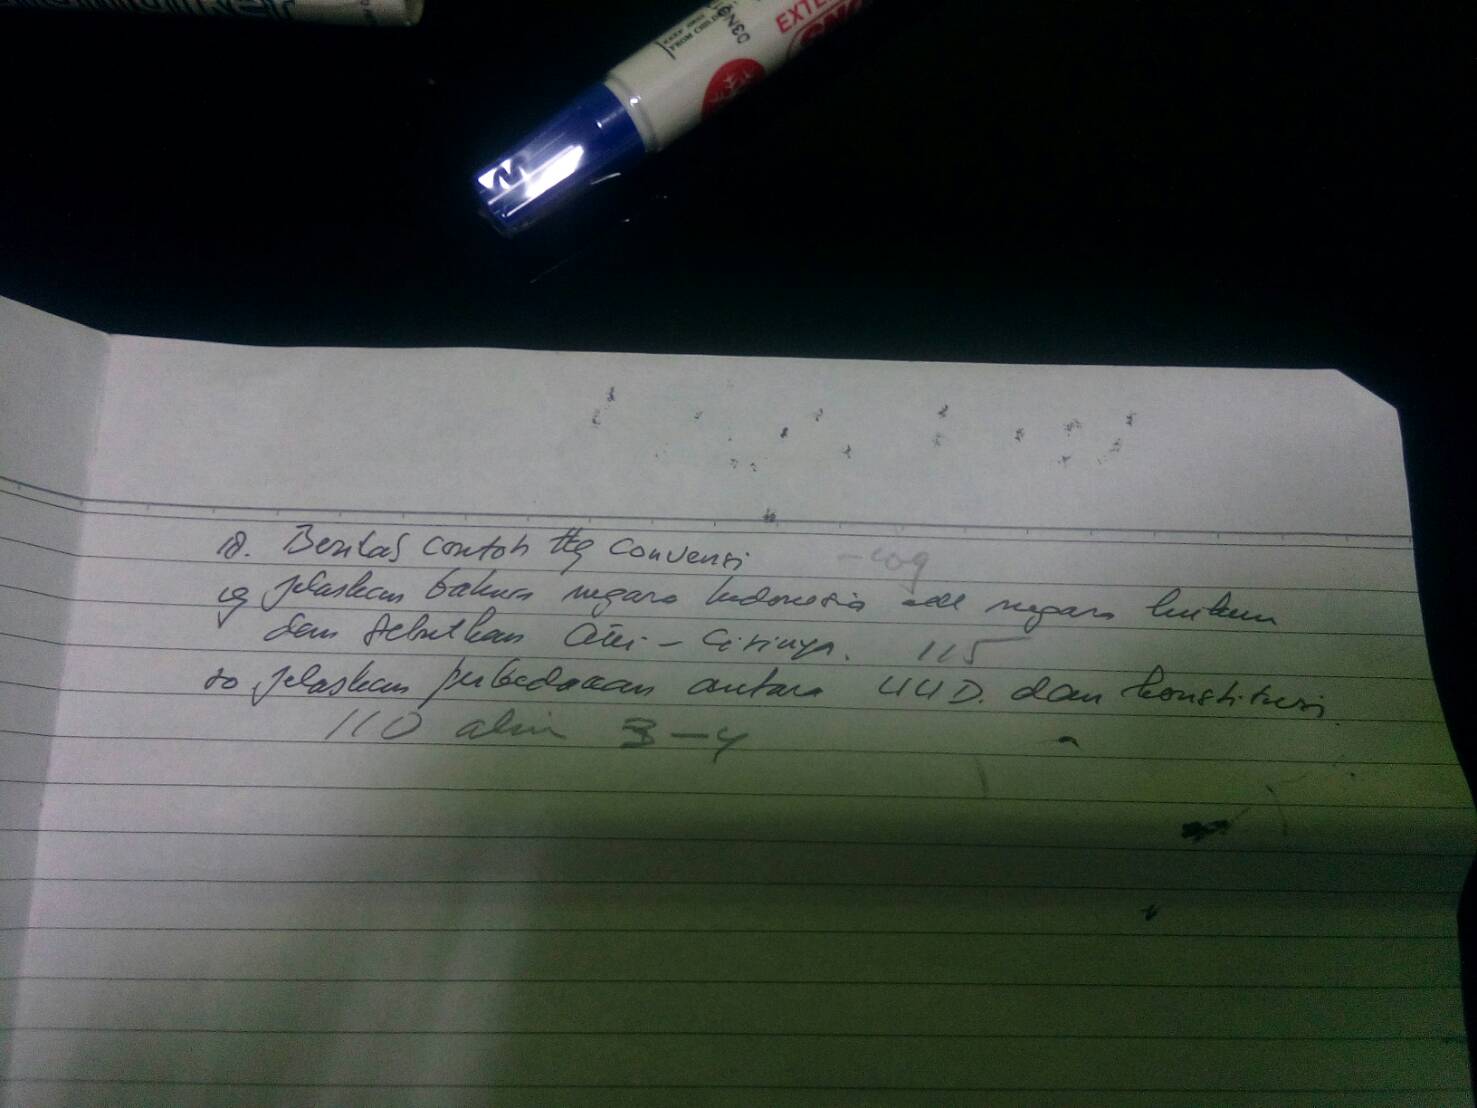 EXTE
KEEP AWAY
FROM CHILD
18. Berilas contoh ttg Convensi -109
19 jelaskan bahwa negara Indonesia adl negara hukum
dan sebutkan Ciri-Cirinya. 115
20 jelaskan perbedaaan antara UUD. dan konstitusi.
110 alin 3-4